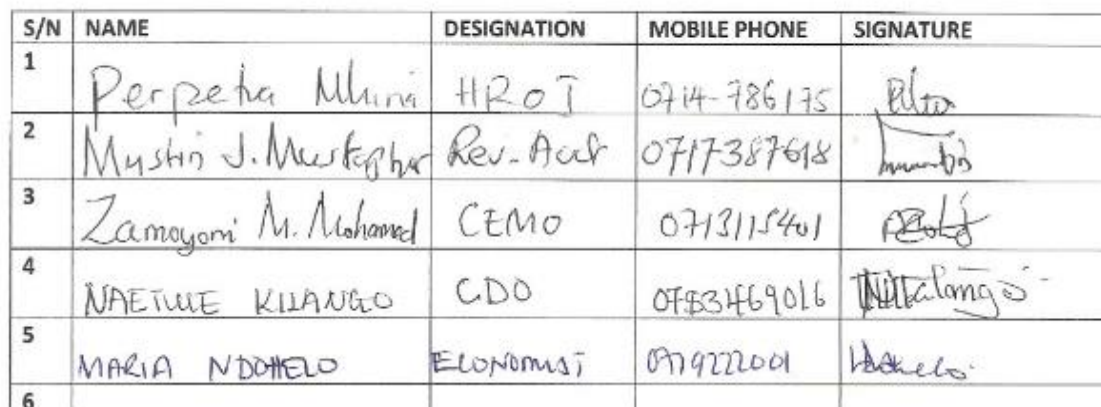 S/N NAME DESIGNATION MOBILE PHONE SIGNATURE
1 Perpetua Mhina HROI 0714-786175
2 Mustin J. Mustapha Rev-Acct 0717387618
3 Zamoyoni M. Mohamed CEMO 0713115401
4 NAETWE KILANGO CDO 0783469016
5 MARIA NDOHELO ECONOMIST 0719222001
6